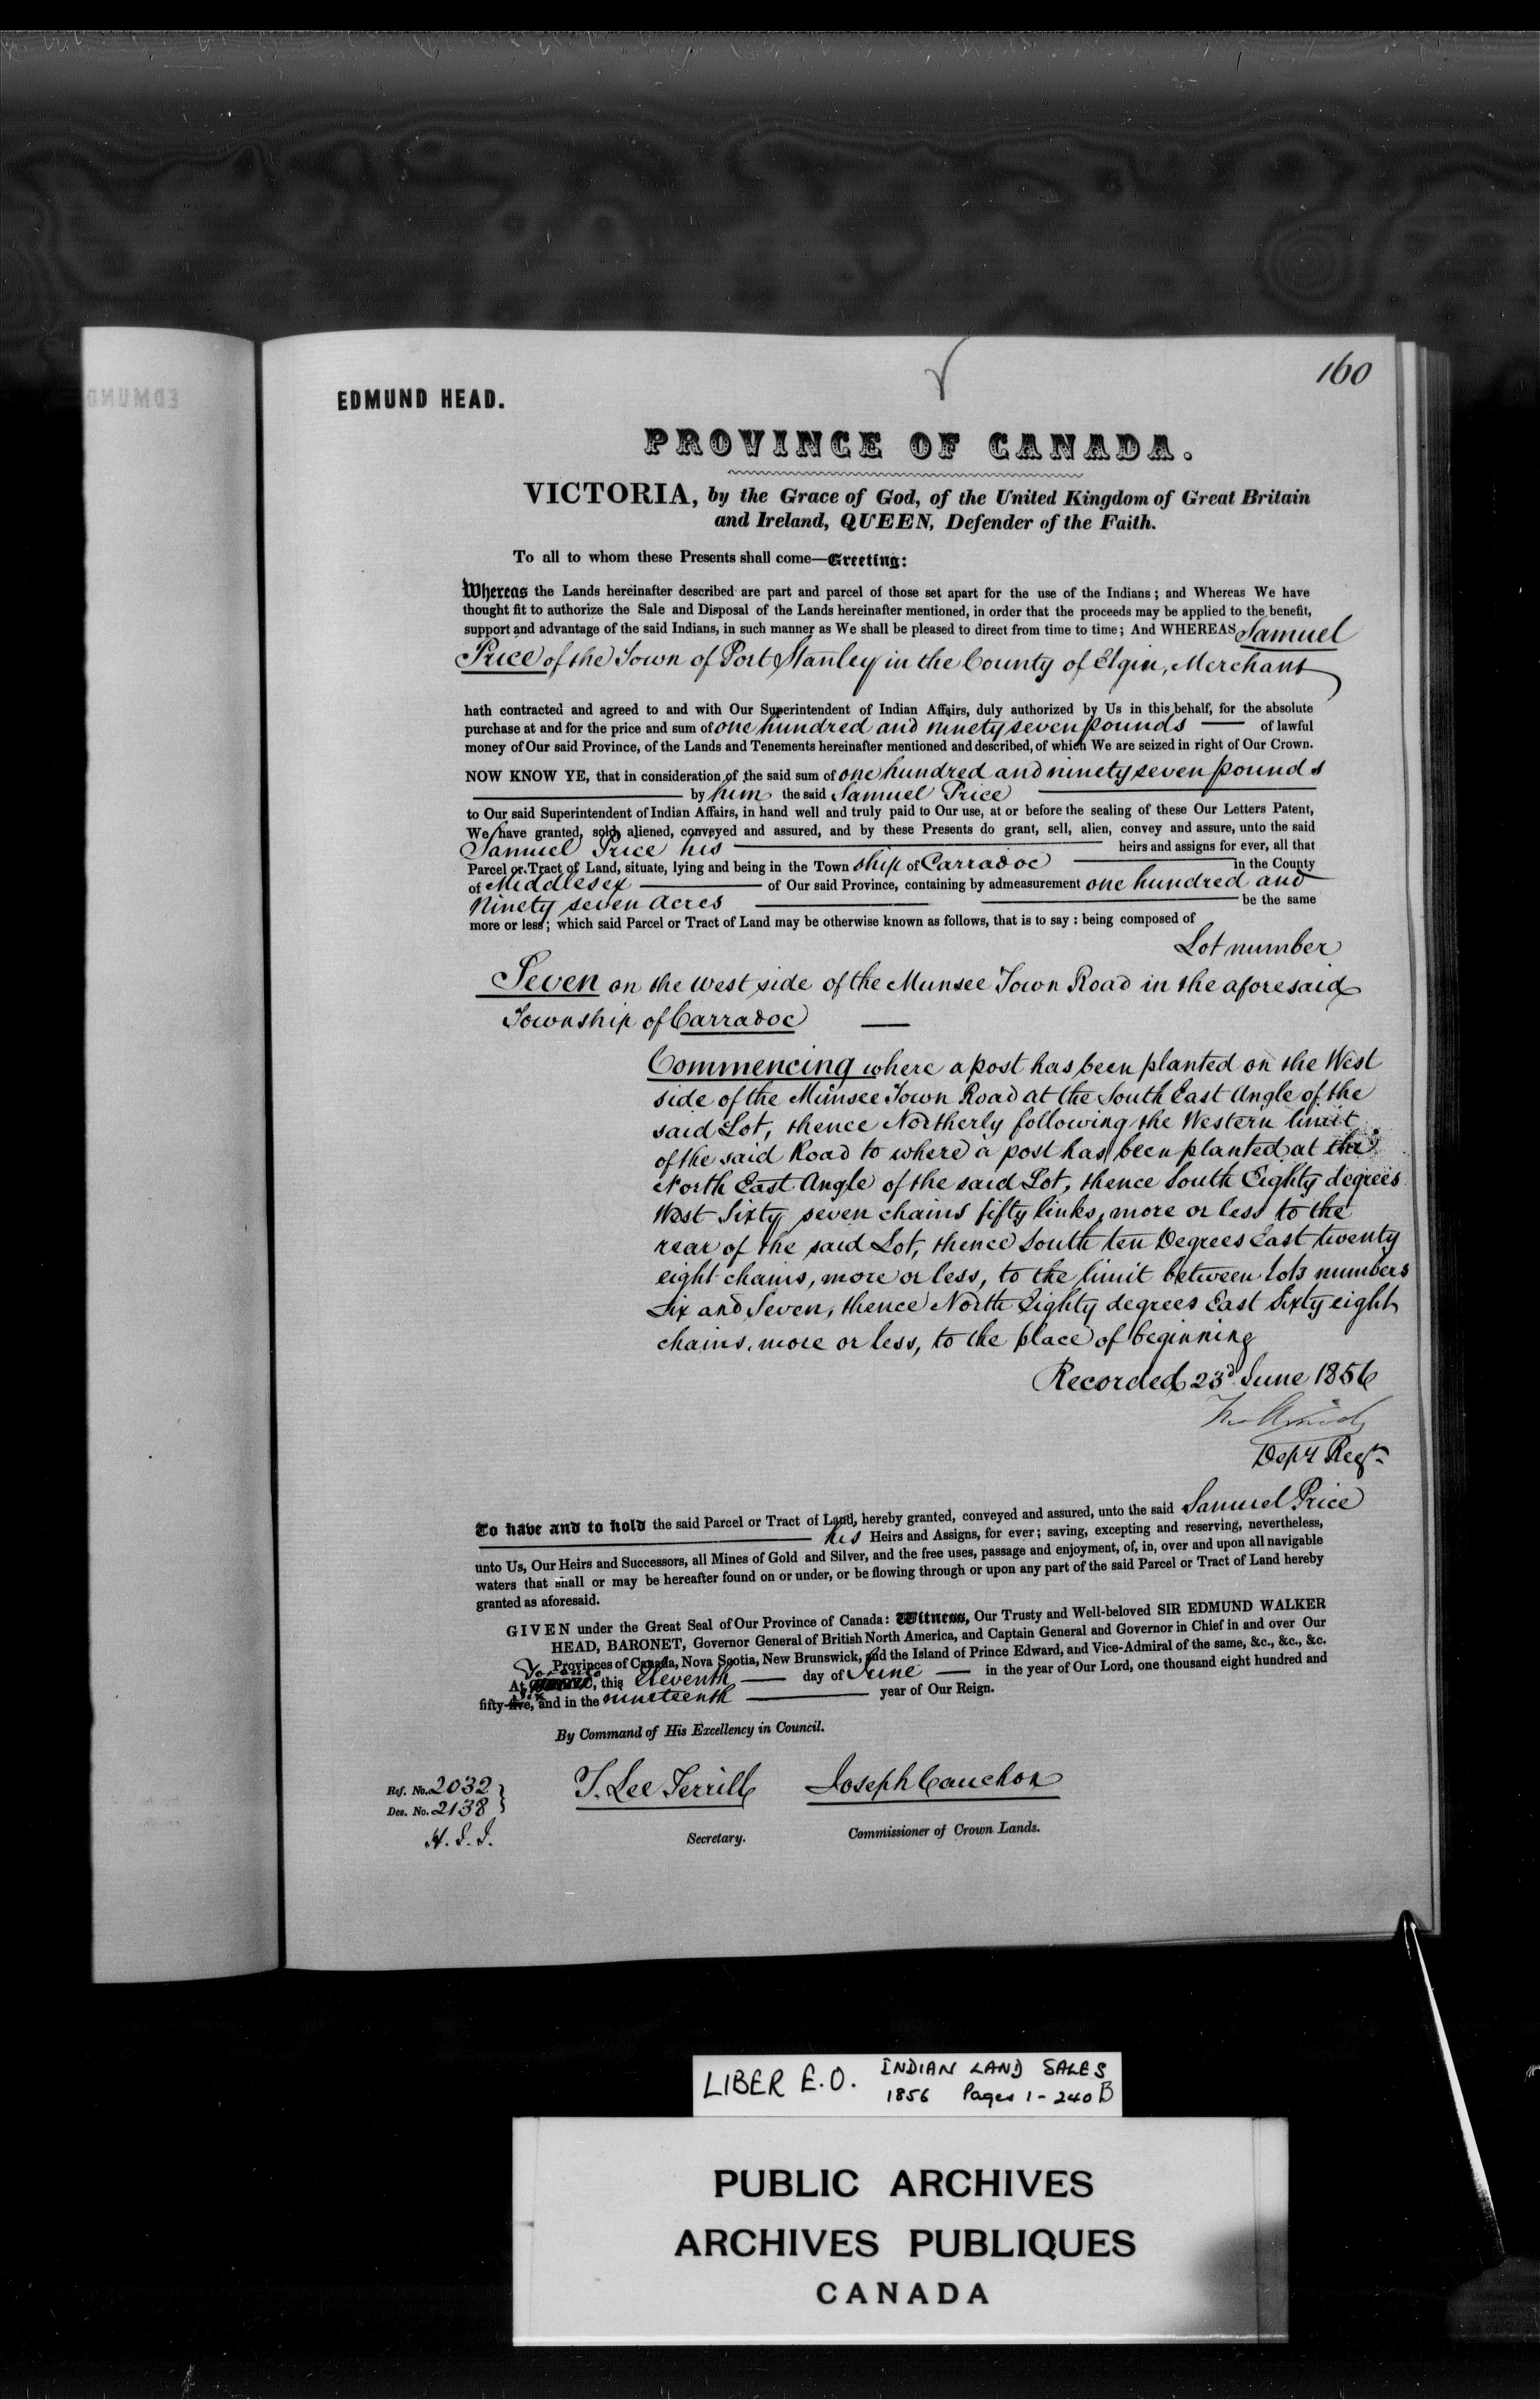 160
EDMUND HEAD.
PROVINCE OF CANADA.
VICTORIA, by the Grace of God, of the United Kingdom of Great Britain
and Ireland, QUEEN, Defender of the Faith.
To all to whom these Presents shall come—Greeting:
Whereas the Lands hereinafter described are part and parcel of those set apart for the use of the Indians; and Whereas We have
thought fit to authorize the Sale and Disposal of the Lands hereinafter mentioned, in order that the proceeds may be applied to the benefit,
support and advantage of the said Indians, in such manner as We shall be pleased to direct from time to time; And WHEREAS Samuel
Price of the Town of Port Stanley in the County of Elgin, Merchant
hath contracted and agreed to and with Our Superintendent of Indian Affairs, duly authorized by Us in this behalf, for the absolute
purchase at and for the price and sum of one hundred and ninety seven pounds — of lawful
money of Our said Province, of the Lands and Tenements hereinafter mentioned and described, of which We are seized in right of Our Crown.
NOW KNOW YE, that in consideration of the said sum of one hundred and ninety seven pounds
by him the said Samuel Price
to Our said Superintendent of Indian Affairs, in hand well and truly paid to Our use, at or before the sealing of these Our Letters Patent,
We have granted, sold, aliened, conveyed and assured, and by these Presents do grant, sell, alien, convey and assure, unto the said
Samuel Price his — heirs and assigns for ever, all that
Parcel or Tract of Land, situate, lying and being in the Town ship of Carradoc — in the County
of Middlesex — of Our said Province, containing by admeasurement one hundred and
Ninety seven Acres — be the same
more or less; which said Parcel or Tract of Land may be otherwise known as follows, that is to say: being composed of
Lot number
Seven on the west side of the Munsee Town Road in the aforesaid
Township of Carradoc —
Commencing where a post has been planted on the West
side of the Munsee Town Road at the South East Angle of the
said Lot, thence Northerly following the Western limit
of the said Road to where a post has been planted at the
North East Angle of the said Lot, thence South Eighty degrees
West Sixty seven chains fifty links, more or less to the
rear of the said Lot, thence South ten Degrees East twenty
eight chains, more or less, to the limit between Lots numbers
Six and Seven, thence North Eighty degrees East Sixty eight
chains, more or less, to the place of beginning
Recorded 23d June 1856
Depy Regr
To have and to hold the said Parcel or Tract of Land, hereby granted, conveyed and assured, unto the said Samuel Price
his Heirs and Assigns, for ever; saving, excepting and reserving, nevertheless,
unto Us, Our Heirs and Successors, all Mines of Gold and Silver, and the free uses, passage and enjoyment, of, in, over and upon all navigable
waters that shall or may be hereafter found on or under, or be flowing through or upon any part of the said Parcel or Tract of Land hereby
granted as aforesaid.
GIVEN under the Great Seal of Our Province of Canada: Witness, Our Trusty and Well-beloved SIR EDMUND WALKER
HEAD, BARONET, Governor General of British North America, and Captain General and Governor in Chief in and over Our
Provinces of Canada, Nova Scotia, New Brunswick, and the Island of Prince Edward, and Vice-Admiral of the same, &c., &c., &c.
At Toronto, this eleventh — day of June — in the year of Our Lord, one thousand eight hundred and
fifty-five, six and in the nineteenth — year of Our Reign.
By Command of His Excellency in Council.
Ref. No. 2032
Des. No. 2138
T. Lee Terrill
Joseph Cauchon
Secretary.
Commissioner of Crown Lands.
LIBER E.O. INDIAN LAND SALES
1856 Pages 1-240B
PUBLIC ARCHIVES
ARCHIVES PUBLIQUES
CANADA